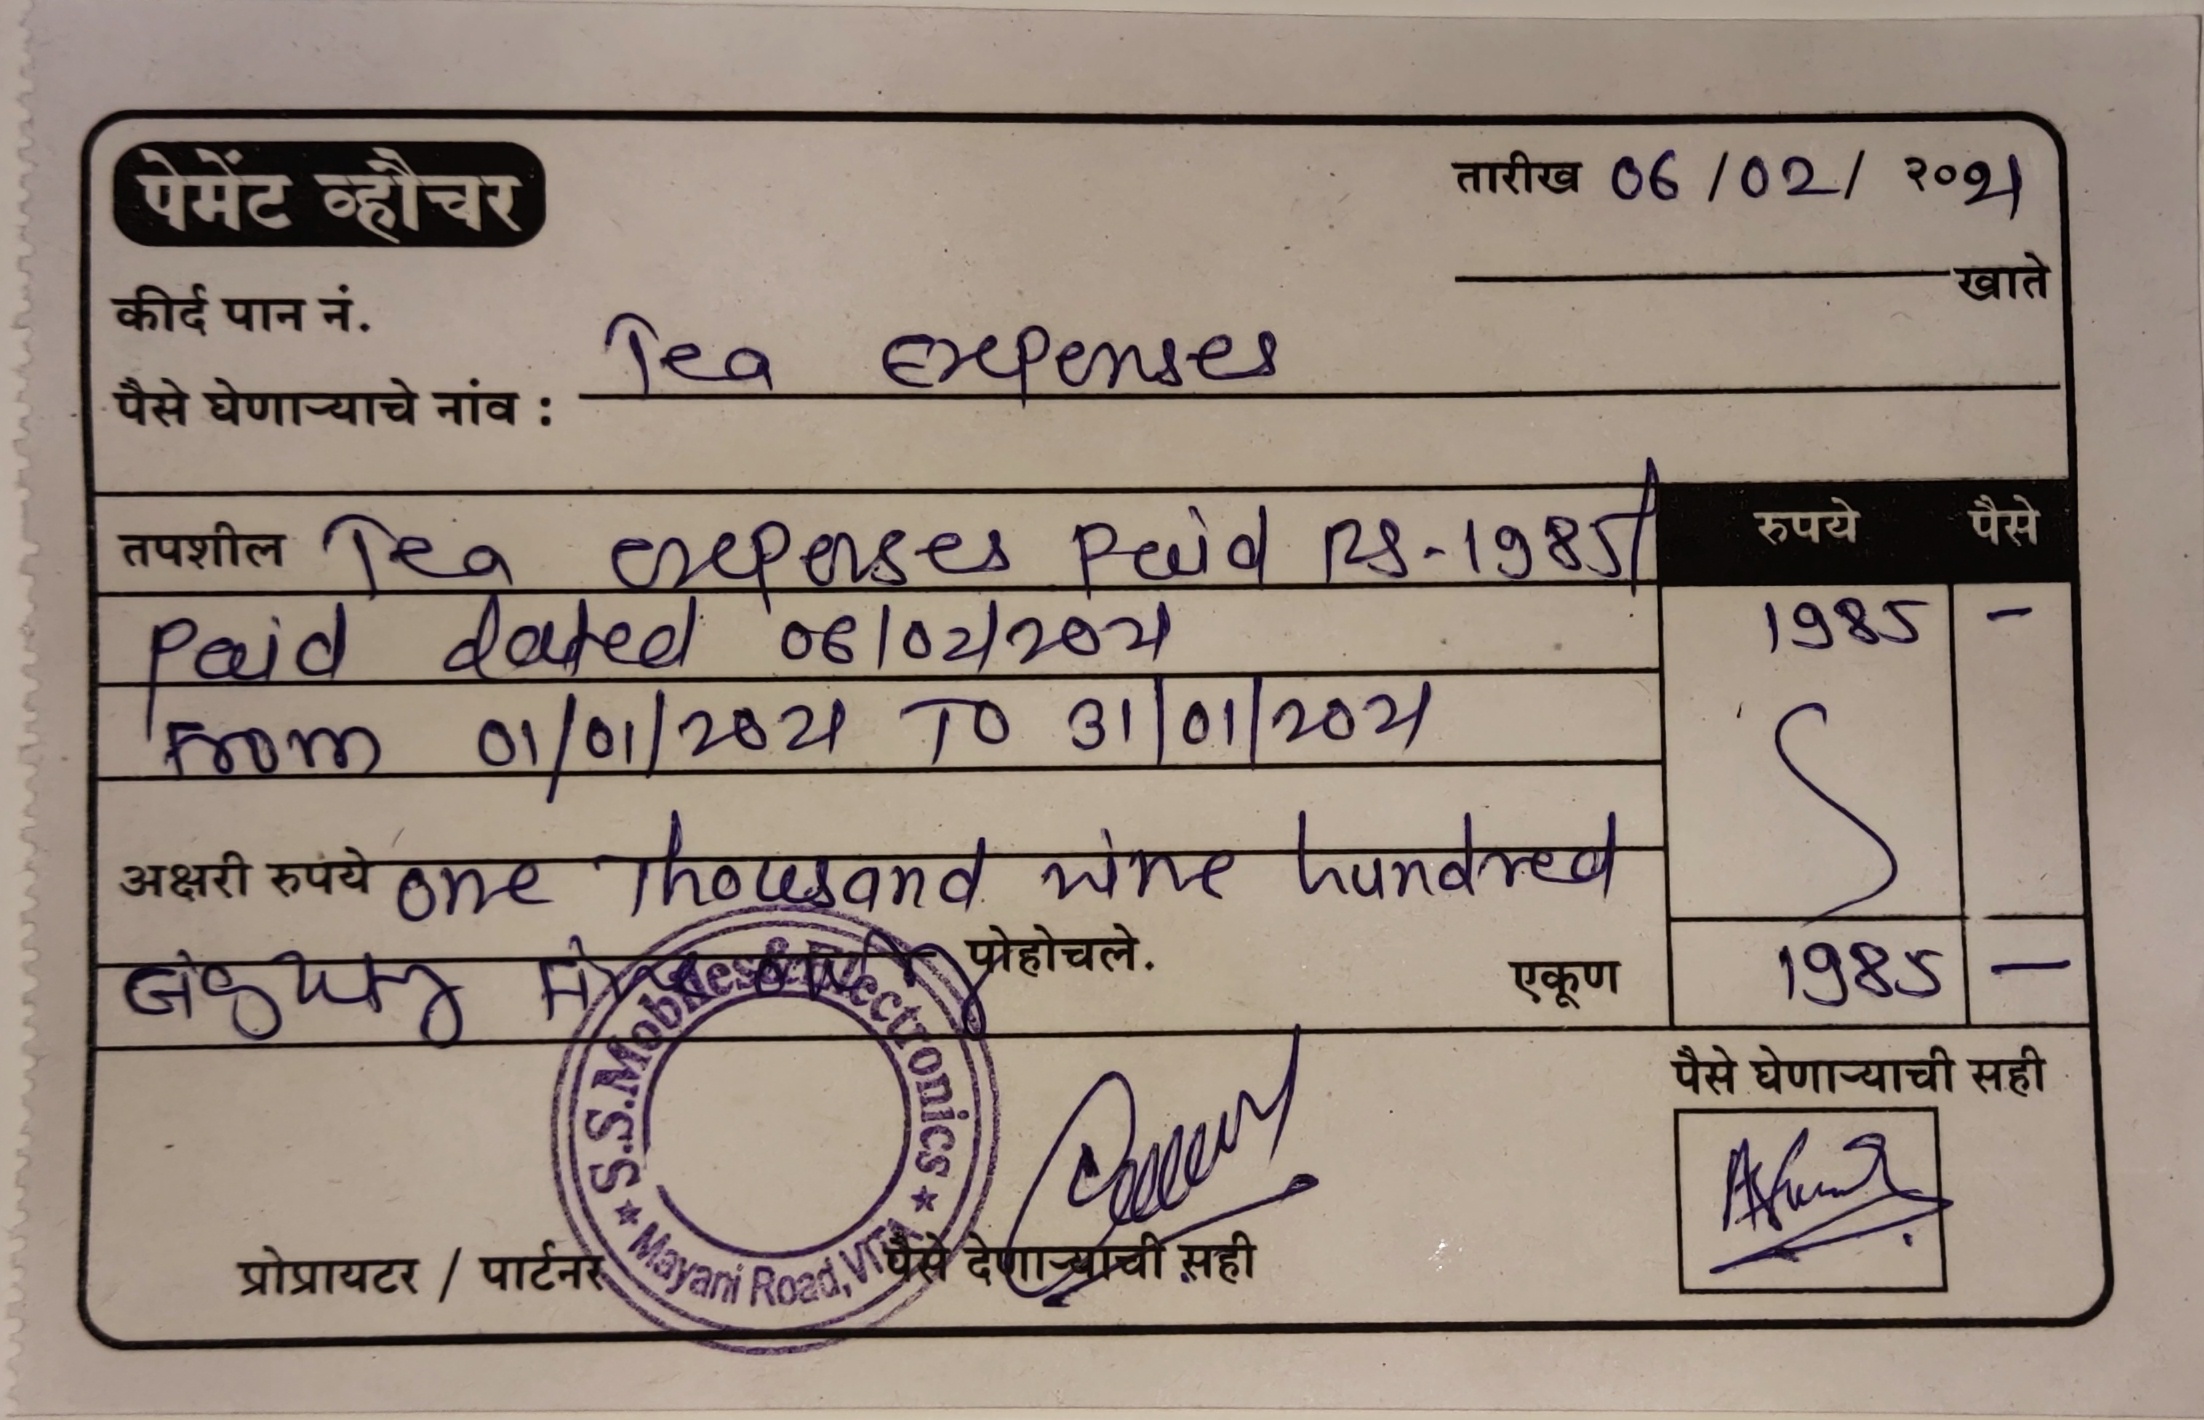 पेमेंट व्हौचर
तारीख 06/02/ २०21
खाते
कीर्द पान नं.
पैसे घेणाऱ्याचे नांव : Tea expenses
तपशील Tea expenses paid RS-1985/
रुपये पैसे
paid dated 06/02/2021
1985 -
From 01/01/2021 TO 31/01/2021
अक्षरी रुपये one Thousand nine hundred
पोहोचले.
एकूण 1985 —
पैसे घेणाऱ्याची सही
S.S.Mobiles & Electronics
Mayani Road, VITA
प्रोप्रायटर / पार्टनर पैसे देणाऱ्याची सही